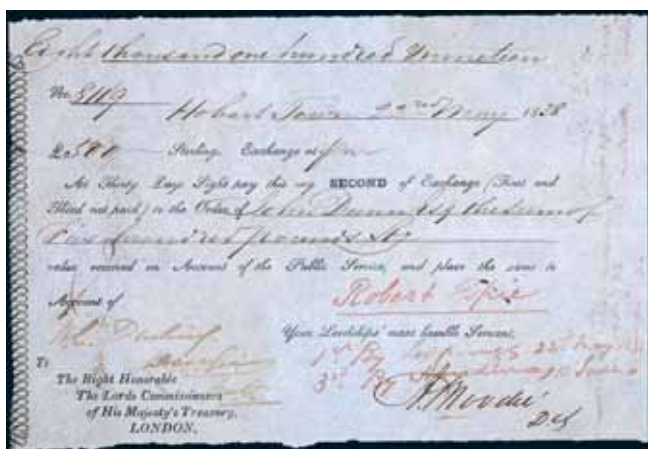 Eight thousand one hundred & nineteen
No. 8119 Hobart Town 22nd May 1838
£500 Sterling. Exchange at
At Thirty Days Sight pay this my SECOND of Exchange (First and
Third not paid) to the Order of John Dunn Esq the sum of
Five hundred pounds Stg
value received on Account of the Public Service, and place the same to
Account of Robert
Your Lordships' most humble Servant,
1st By 22 May
3rd By
To
The Right Honorable
The Lords Commissioners
of His Majesty's Treasury,
LONDON.
Moodie